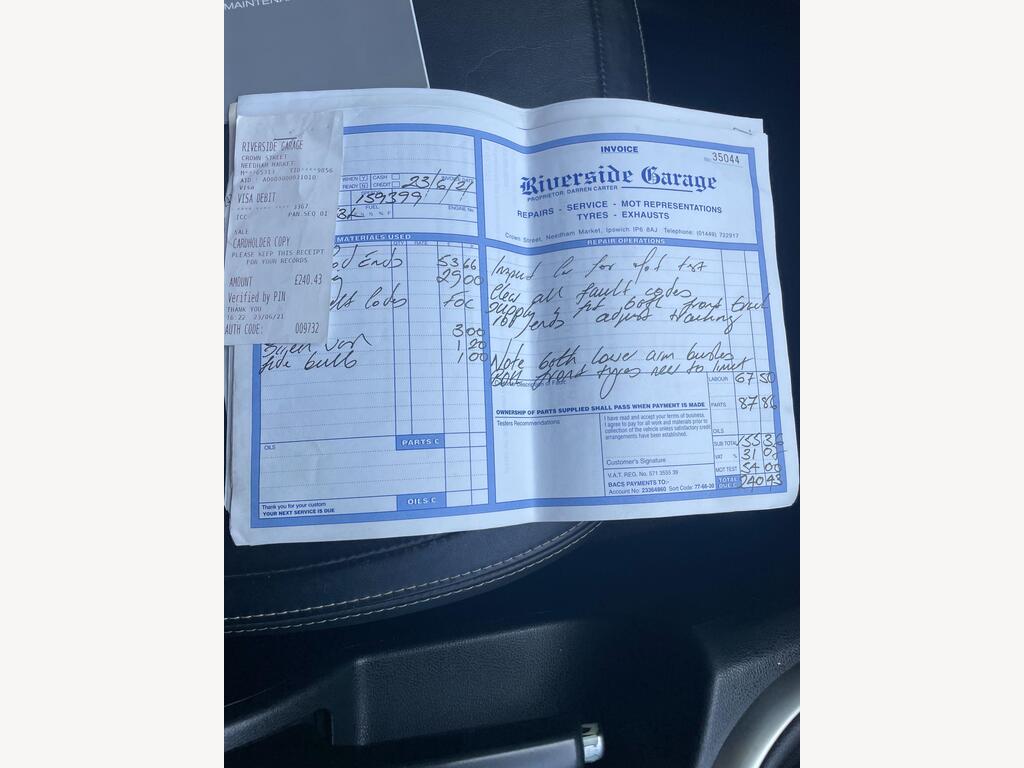 MAINTENA
RIVERSIDE GARAGE
CROWN STREET
NEEDHAM MARKET
M***65313 TID****9856
AID: A0000000031010
Visa
VISA DEBIT
**** **** **** 3367
ICC PAN.SEQ 01
SALE
CARDHOLDER COPY
PLEASE KEEP THIS RECEIPT
FOR YOUR RECORDS
AMOUNT £240.43
Verified by PIN
THANK YOU
16:22 23/06/21
AUTH CODE: 009732
WHEN CASH INVOICE DATE
READY CREDIT 23/6/21
159399
FUEL ENGINE No.
MATERIALS USED
QTY RATE £
od Ends 53 66
29 00
lt Codes FOC
3 00
1 20
bulb 1 00
OILS
PARTS £
Thank you for your custom
YOUR NEXT SERVICE IS DUE
OILS £
INVOICE
No. 35044
Riverside Garage
PROPRIETOR: DARREN CARTER
REPAIRS - SERVICE - MOT REPRESENTATIONS
TYRES - EXHAUSTS
Crown Street, Needham Market, Ipswich IP6 8AJ Telephone: (01449) 722917
REPAIR OPERATIONS
Inspect Car for Mot test
Clear all fault codes
Supply & fit both front track
rod ends adjust tracking
Note both lower arm bushes
Both front tyres near to limit
LABOUR 67 50
OWNERSHIP OF PARTS SUPPLIED SHALL PASS WHEN PAYMENT IS MADE
PARTS 87 86
Testers Recommendations
I have read and accept your terms of business.
I agree to pay for all work and materials prior to
collection of the vehicle unless satisfactory credit
arrangements have been established.
OILS
SUB TOTAL 155 36
Customer's Signature
VAT % 31 07
V.A.T. REG. No. 571 3555 39
MOT TEST 54 00
BACS PAYMENTS TO:-
Account No: 23364860 Sort Code: 77-66-30
TOTAL DUE £ 240 43